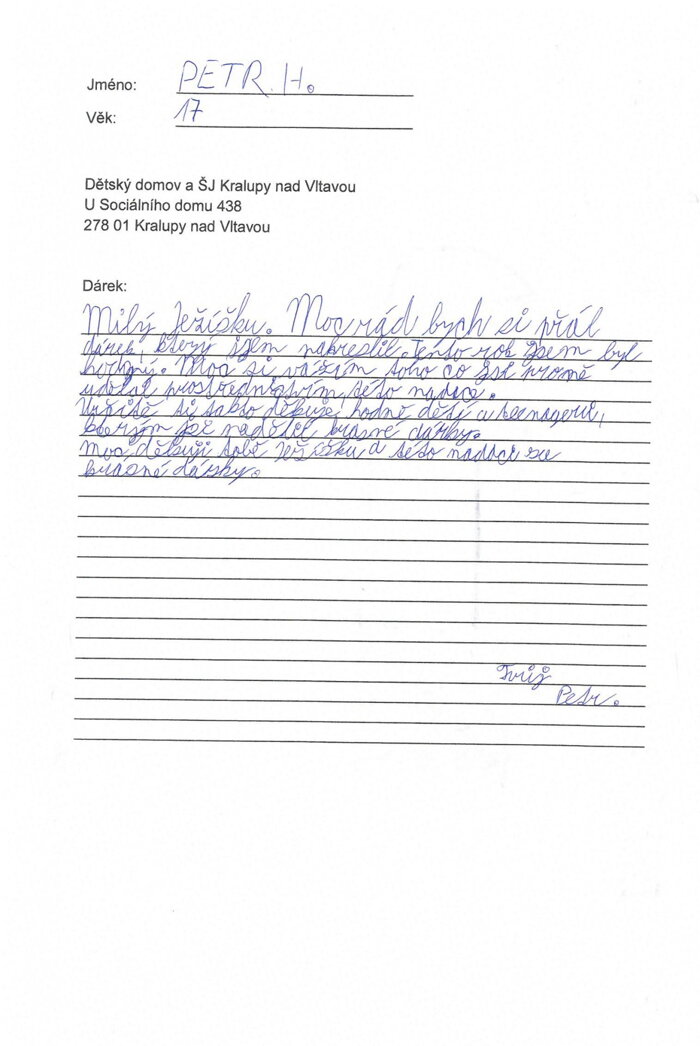 Jméno: PETR. H.
Věk: 17
Dětský domov a ŠJ Kralupy nad Vltavou
U Sociálního domu 438
278 01 Kralupy nad Vltavou
Dárek:
Milý Ježíšku. Moc rád bych si přál
dárek, který jsem nakreslil. Tento rok jsem byl
hodný. Moc si vážím toho co jsi promě
udělal prostřednictvím této nadace.
Určitě ti takto děkuje hodně dětí a teenagerů,
kterým jsi nadělil krásné dárky.
Moc děkuji tobě Ježíšku a této nadaci za
krásné dárky.
Tvůj
Petr.